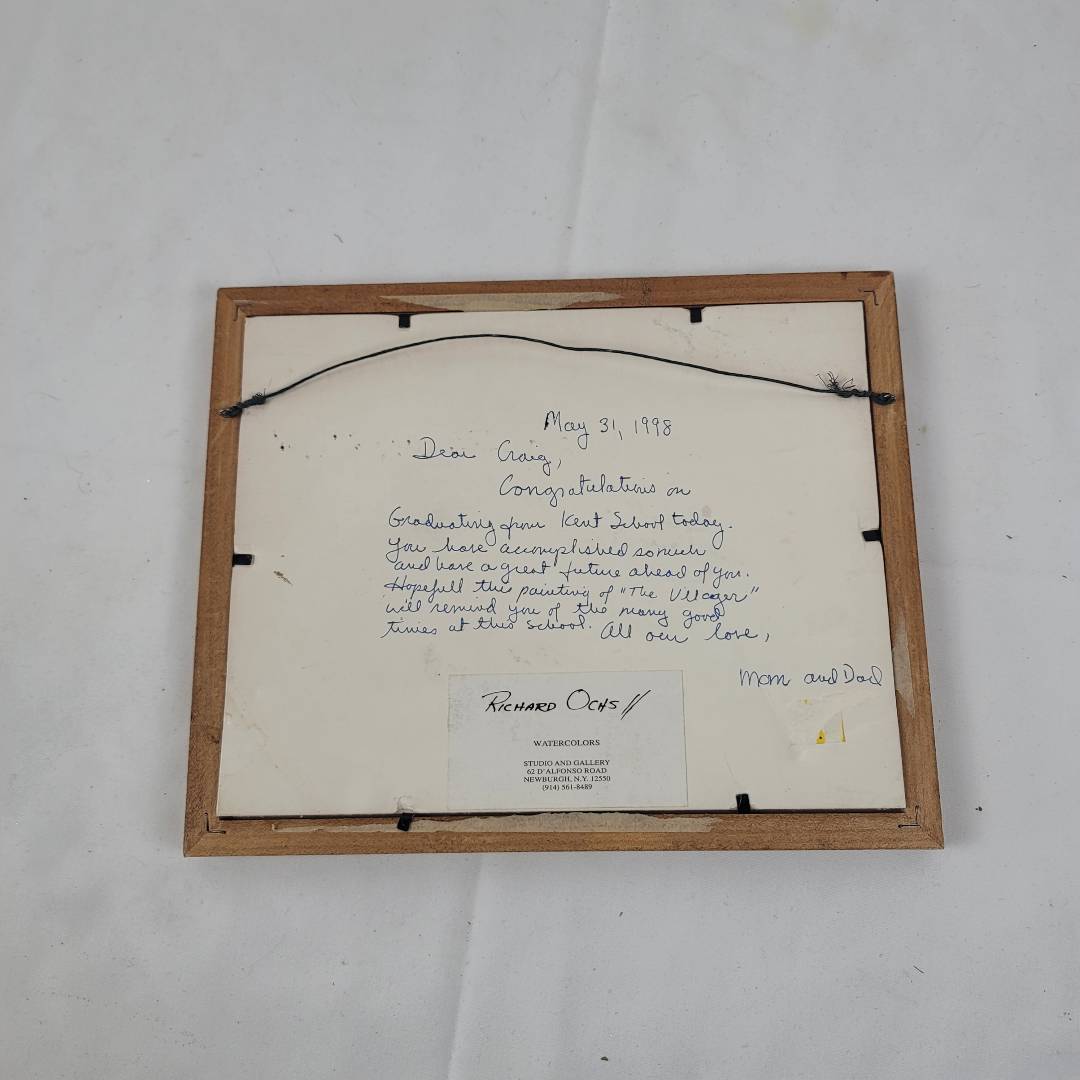 May 31, 1998
Dear Craig,
Congratulations on
Graduating from Kent School today.
You have accomplished so much
and have a great future ahead of you.
Hopefull the painting of "The Villager"
will remind you of the many good
times at this school. All our love,
Mom and Dad
RICHARD OCHS //
WATERCOLORS
STUDIO AND GALLERY
62 D'ALFONSO ROAD
NEWBURGH, N.Y. 12550
(914) 561-8489